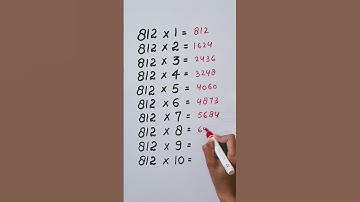 812 x 1 = 812
812 x 2 = 1624
812 x 3 = 2436
812 x 4 = 3248
812 x 5 = 4060
812 x 6 = 4873
812 x 7 = 5684
812 x 8 = 64
812 x 9 =
812 x 10 =